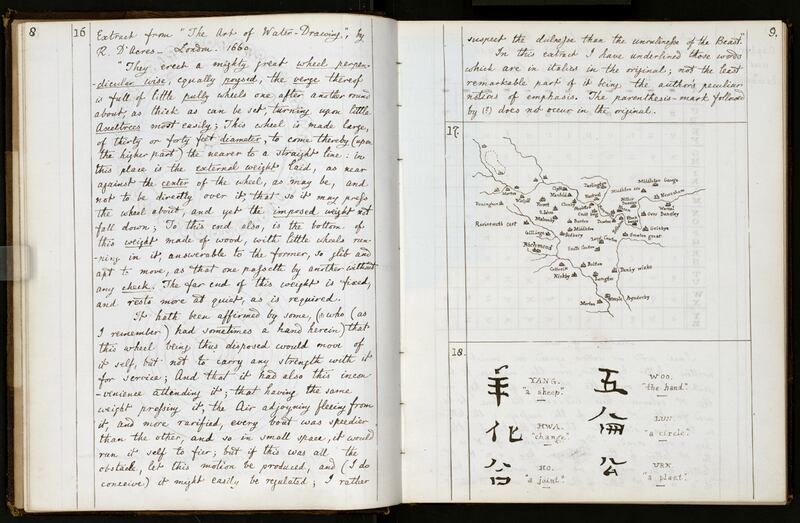 8
16
Extract from "The Art of Water-Drawing", by
R. D'Acres_ London. 1660.
"They erect a mighty great wheel perpen-
-dicular wise, equally poysed, the verge thereof
is full of little pully wheels one after another round
about, as thick as can be set, turning upon little
Axeltrees most easily; This wheel is made large,
of thirty or forty feet diameter, to come thereby (upon
the higher part) the nearer to a straight line: in
this place is the external weight laid, as near
against the center of the wheel, as may be, and
not to be directly over it; that so it may press
the wheel about, and yet the imposed weight not
fall down; To this end also, is the bottom of
this weight made of wood, with little wheels run-
-ning in it, answerable to the former, so glib and
apt to move, as that one passeth by another without
any check. The far end of this weight is fixed,
and rests more at quiet, as is required.
It hath been affirmed by some, who (as
I remember) had sometimes a hand herein) that
this wheel being thus disposed would move of
it self, but not to carry any strength with it
for service; And that it had also this incon
-venience attending it; that having the same
weight pressing it, the Air adjoyning fleeing from
it, and more rarified, every bout was speedier
than the other, and so in small space, it would
run it self to fier; but if this was all the
obstacle, let this motion be produced, and (I do
conceive) it might easily be regulated; I rather
9.
suspect the dulnesse than the unrulinesse of the Beast."
In this extract I have underlined those words
which are in italics in the original; not the least
remarkable part of it being the author's peculiar
notions of emphasis. The parenthesis-mark followed
by (!) does not occur in the original.
17.
Darlington
Middleton George
Middleton
Newsham
Barton
Ravensworth cast
Gilling
Richmond
Middleton
Smeton great
Danby wiske
Bolton
Catterick
Kirkby
Langton
Morton
Aynderby
18.
羊
YANG.
"a sheep".
五
WOO.
"the hand".
化
HWA.
"change".
侖
LUN.
"a circle".
合
HO.
"a joint".
"a plant".